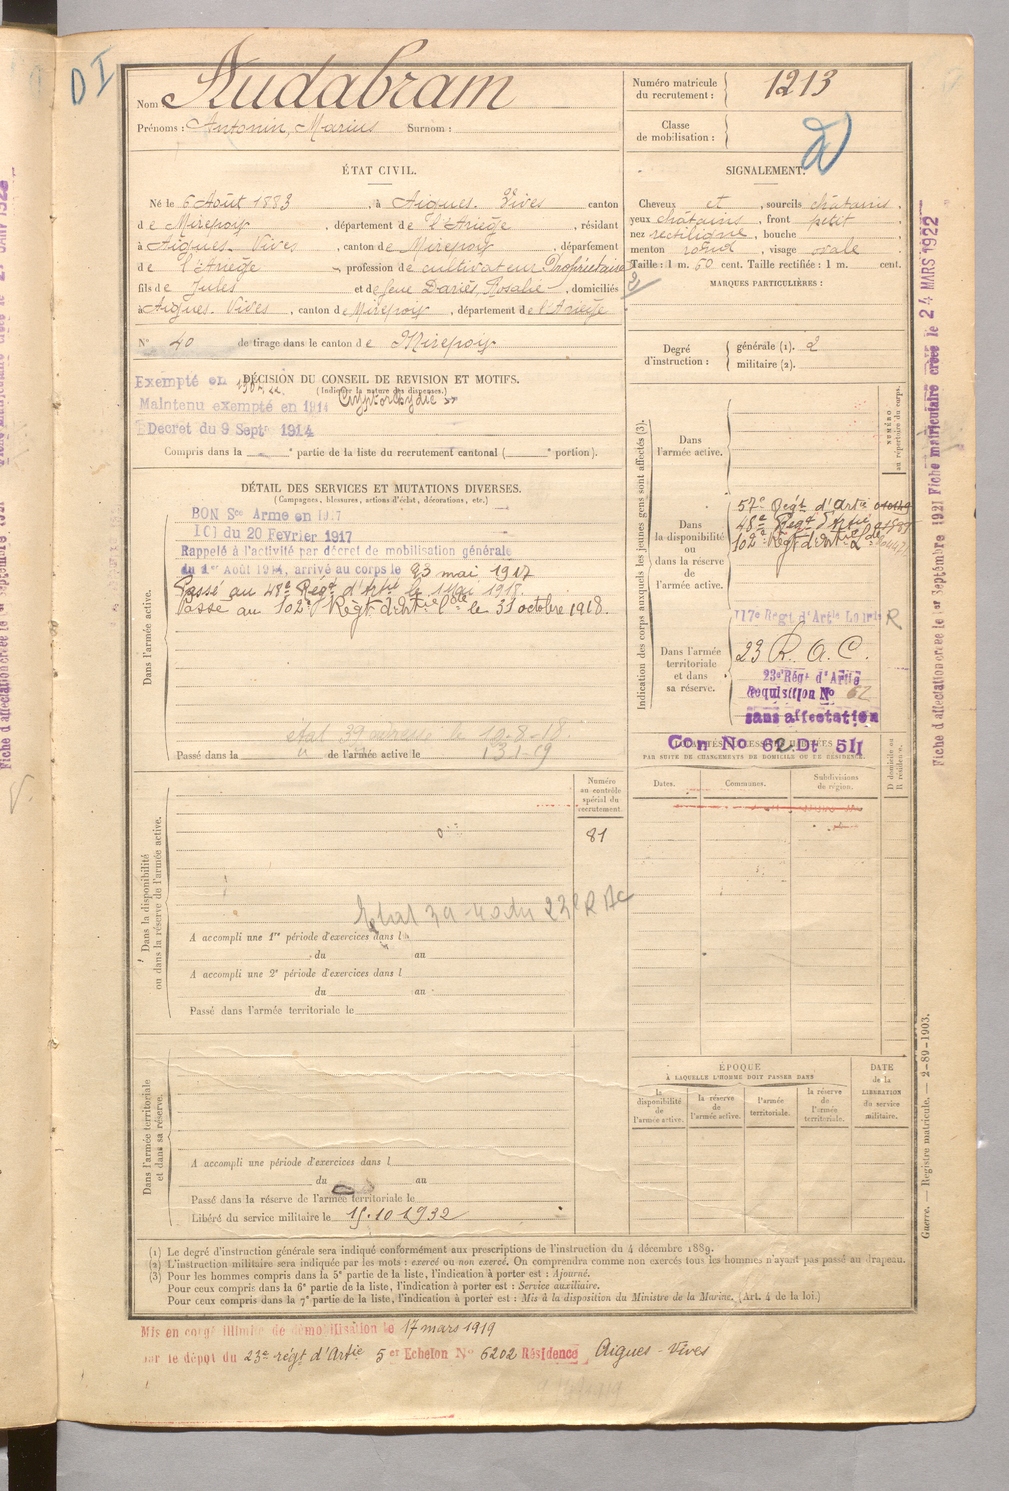 DI
Nom Audabram
Prénoms : Antonin, Marius Surnom :
Numéro matricule du recrutement : 1213
Classe de mobilisation :
ÉTAT CIVIL.
Né le 6 Août 1883, à Aigues-Vives canton
de Mirepoix, département de l'Ariège, résidant
à Aigues-Vives, canton de Mirepoix, département
de l'Ariège, profession de cultivateur Propriétaire
fils de Jules et de feue Dariès, Rosalie, domiciliés
à Aigues-Vives, canton de Mirepoix, département de l'Ariège
N° 40 de tirage dans le canton de Mirepoix
SIGNALEMENT.
Cheveux et, sourcils châtains,
yeux châtains, front petit
nez rectiligne, bouche
menton rond, visage ovale
Taille : 1 m. 60 cent. Taille rectifiée : 1 m. cent.
MARQUES PARTICULIÈRES :
Degré d'instruction : générale (1). 2
militaire (2).
DÉCISION DU CONSEIL DE REVISION ET MOTIFS.
(Indiquer la nature des dispenses.)
Exempté en
Maintenu exempté en 1914
Décret du 9 Septre 1914
Compris dans la e partie de la liste du recrutement cantonal ( e portion).
DÉTAIL DES SERVICES ET MUTATIONS DIVERSES.
(Campagnes, blessures, actions d'éclat, décorations, etc.)
Dans l'armée active.
BON Sce Armé en 1917
du 20 Fevrier 1917
Rappelé à l'activité par décret de mobilisation générale
du 1er Août 1914, arrivé au corps le 23 mai 1917
Passé au 48e Régt d'Artie le 1918.
Passé au 102e Régt d'Artie Lde le 31 octobre 1918.
Passé dans la de l'armée active le
Indication des corps auxquels les jeunes gens sont affectés (3).
NUMÉRO au répertoire du corps.
Dans l'armée active.
Dans la disponibilité ou dans la réserve de l'armée active.
57e Régt d'Artie
48e Régt d'Artie
102e Régt d'Artie Lde
Dans l'armée territoriale et dans sa réserve.
117e Régt d'Artie Lourde
23 R. A. C.
23e Régt d'Artie
Requisition No 62
sans affectation
Con No 62 Dt 511
PAR SUITE DE CHANGEMENTS DE DOMICILE OU DE RÉSIDENCE.
Dates. Communes. Subdivisions de région. D domicile ou R résidence.
Dans la disponibilité ou dans la réserve de l'armée active.
Numéro au contrôle spécial du recrutement.
81
A accompli une 1re période d'exercices dans l
du au
A accompli une 2e période d'exercices dans l
du au
Passé dans l'armée territoriale le
ÉPOQUE
À LAQUELLE L'HOMME DOIT PASSER DANS
la disponibilité de l'armée active.
la réserve de l'armée active.
l'armée territoriale.
la réserve de l'armée territoriale.
DATE de la LIBÉRATION du service militaire.
Dans l'armée territoriale et dans sa réserve.
A accompli une période d'exercices dans l
du au
Passé dans la réserve de l'armée territoriale le
Libéré du service militaire le 15.10.1932
(1) Le degré d'instruction générale sera indiqué conformément aux prescriptions de l'instruction du 4 décembre 1889.
(2) L'instruction militaire sera indiquée par les mots : exercé ou non exercé. On comprendra comme non exercés tous les hommes n'ayant pas passé au drapeau.
(3) Pour les hommes compris dans la 5e partie de la liste, l'indication à porter est : Ajourné.
Pour ceux compris dans la 6e partie de la liste, l'indication à porter est : Service auxiliaire.
Pour ceux compris dans la 7e partie de la liste, l'indication à porter est : Mis à la disposition du Ministre de la Marine. (Art. 4 de la loi.)
Mis en congé illimité de démobilisation le 17 mars 1919
par le dépôt du 23e régt d'Artie 5 er Echelon No 6202 Résidence Aigues-Vives
Guerre. — Registre matricule. — 2-89-1903.
Fiche d'affectation créée le 1er Septembre 1921 Fiche matriculaire créée le 24 MARS 1922